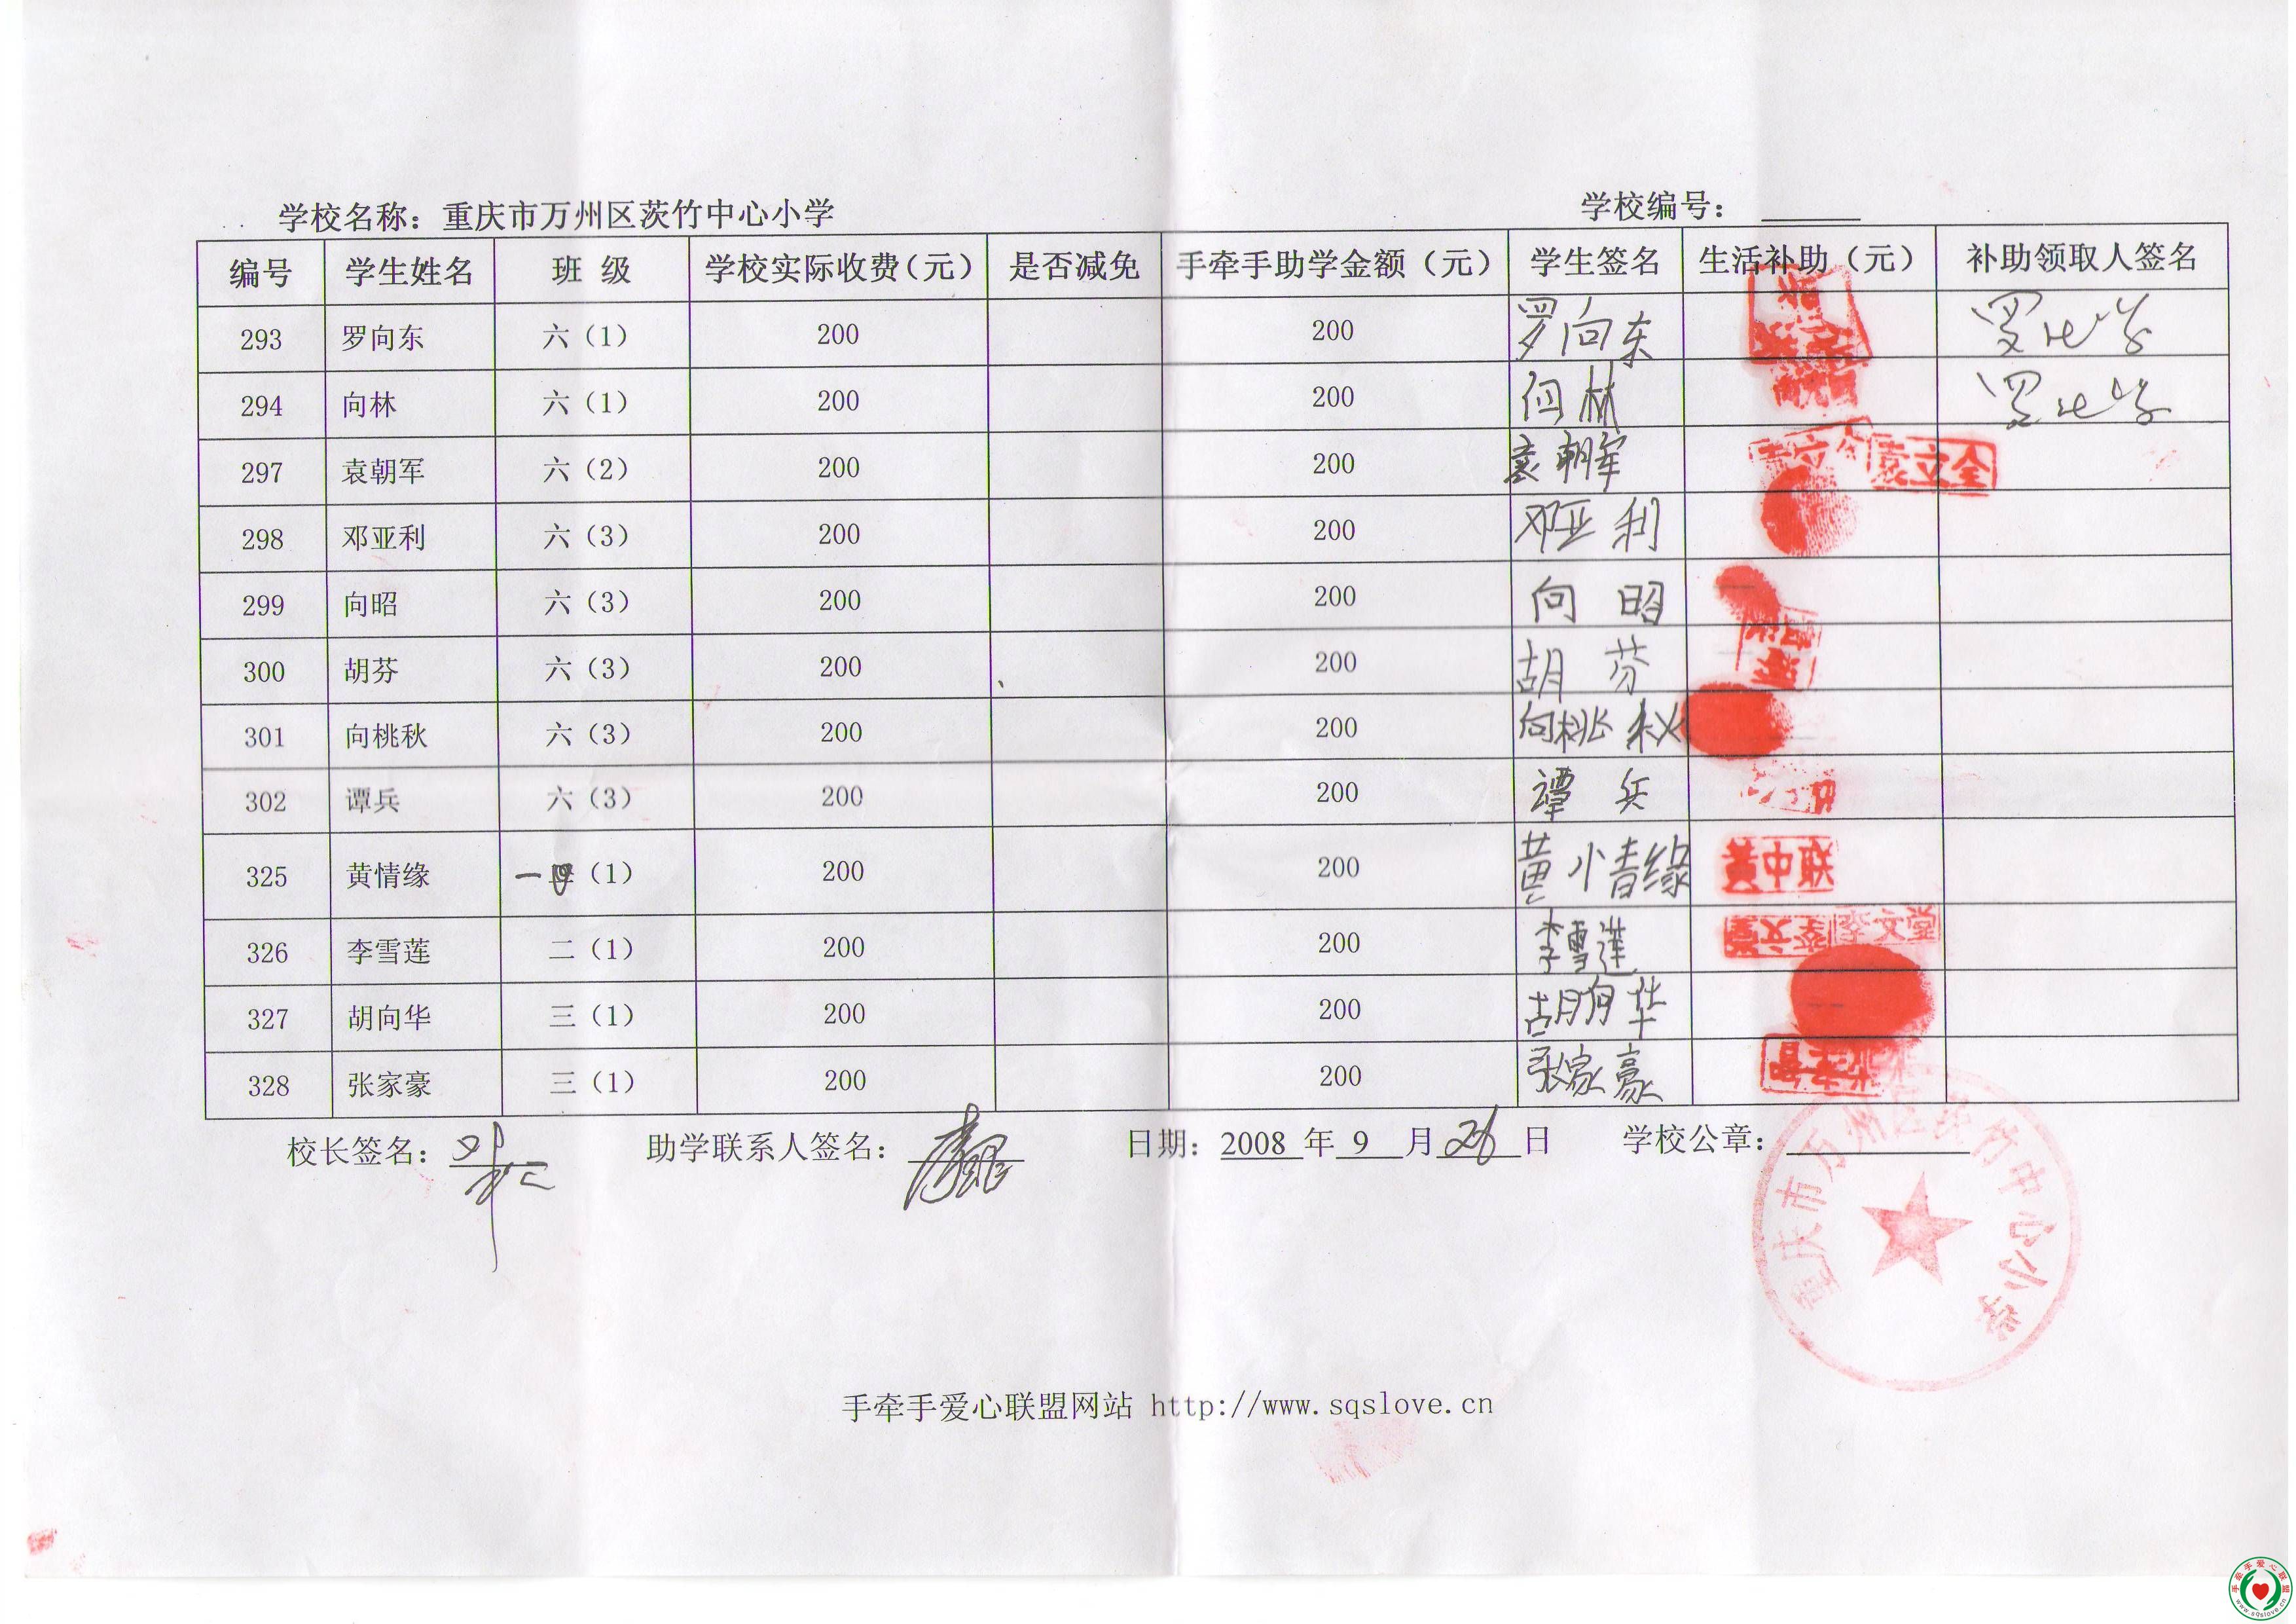 学校名称：重庆市万州区茨竹中心小学 学校编号：
编号 学生姓名 班 级 学校实际收费（元） 是否减免 手牵手助学金额（元） 学生签名 生活补助（元） 补助领取人签名
293 罗向东 六（1） 200 200 罗向东
294 向林 六（1） 200 200 向林
297 袁朝军 六（2） 200 200 袁朝军 袁立全
298 邓亚利 六（3） 200 200 邓亚利
299 向昭 六（3） 200 200 向昭
300 胡芬 六（3） 200 200 胡芬
301 向桃秋 六（3） 200 200 向桃秋
302 谭兵 六（3） 200 200 谭兵
325 黄情缘 一（1） 200 200 黄情缘 黄中联
326 李雪莲 二（1） 200 200 李雪莲 李文堂 李文堂
327 胡向华 三（1） 200 200 胡向华
328 张家豪 三（1） 200 200 张家豪
校长签名： 助学联系人签名： 日期：2008 年 9 月 26 日 学校公章：
重庆市万州区茨竹中心小学
手牵手爱心联盟网站 http://www.sqslove.cn
手牵手爱心联盟
www.sqslove.cn